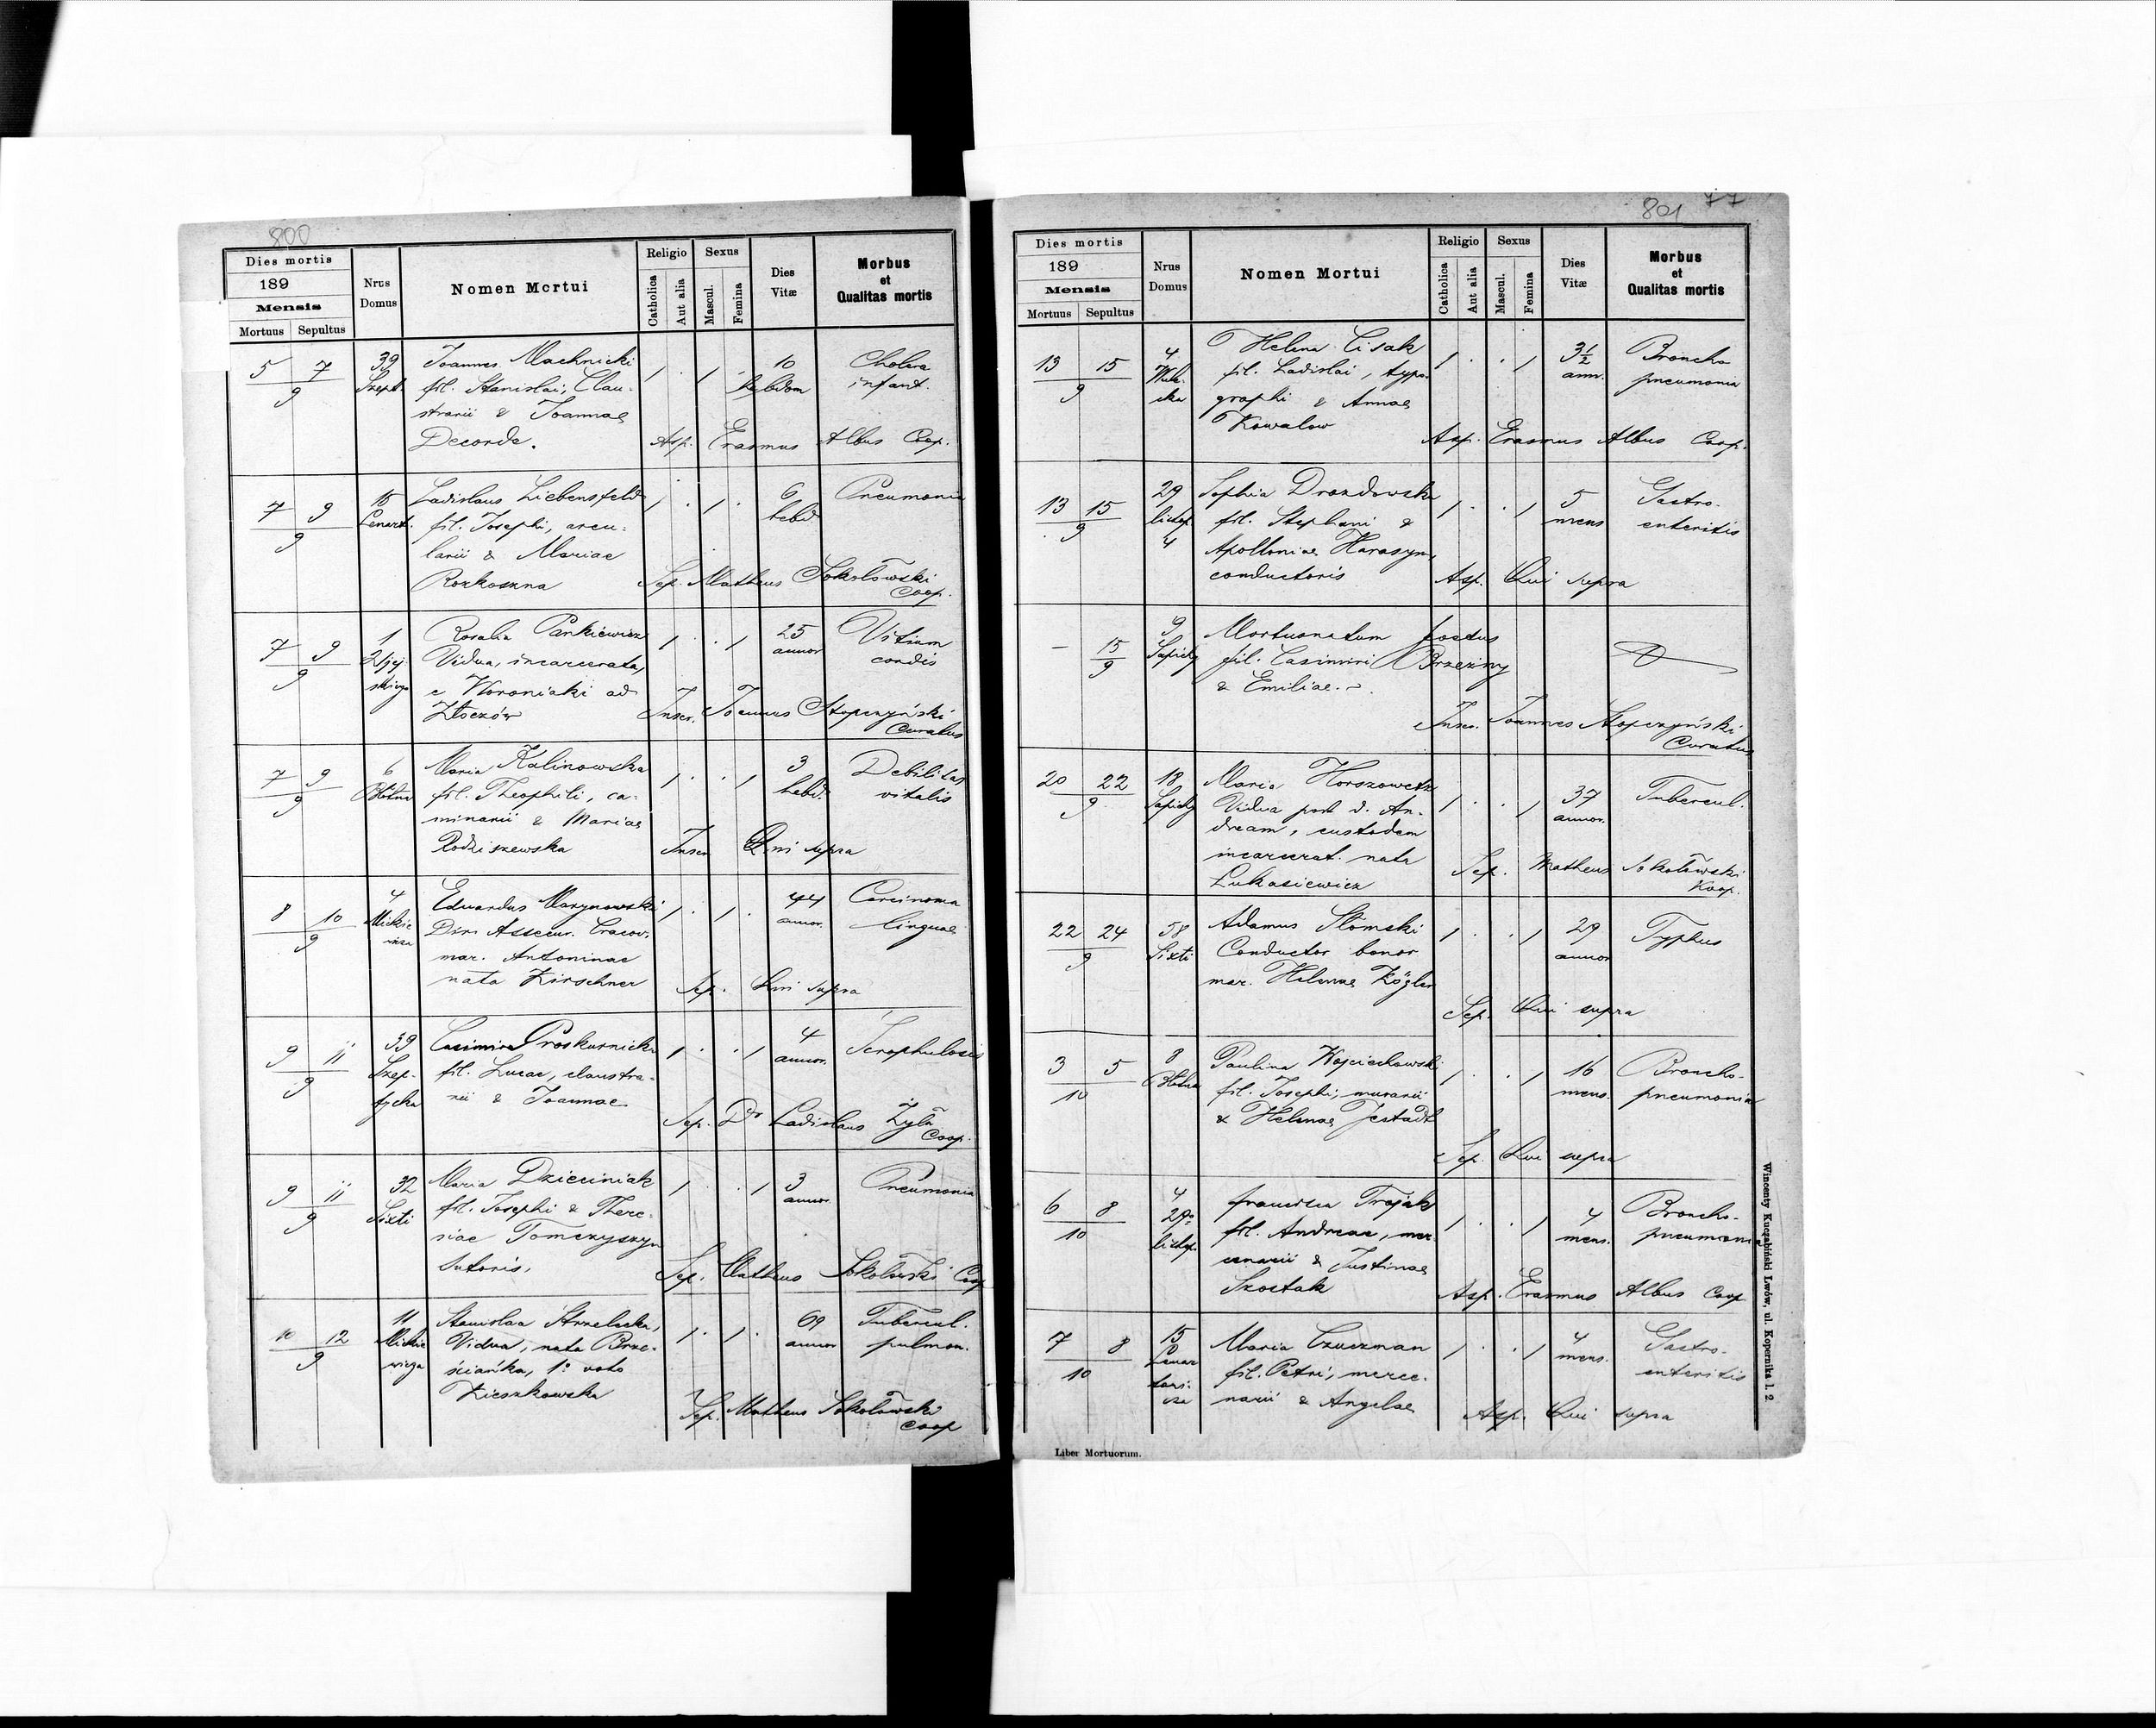 800
Dies mortis
189
Mensis
Mortuus Sepultus
Nrus Domus
Nomen Mortui
Religio
Catholica
Aut alia
Sexus
Mascul.
Femina
Dies Vitæ
Morbus et Qualitas mortis
5 7 39 Joannes Machnicki 1 . 1 . 10 Cholera
9 Szept. fil. Stanislai, Clau- hebdom infant.
strarii & Joannae
Decorde. Asp. Erasmus Albus Coop.
7 9 15 Ladislaus Liebensfeld 1 . 1 . 6 Pneumonia
9 Lenart. fil. Josephi, arcu- hebd
larii & Mariae
Rozkoszna Sep. Matheus Sokołowski
Coop.
7 9 1 Rosalia Pankiewicz 1 . . 1 25 Vitium
9 Vidua, incarcerata, annor cordis
e Woroniaki ad
Złoczów Inscr. Joannes Stopczyński
Curatus
7 9 6 Maria Kalinowska 1 . . 1 3 Debilitas
9 Błotna fil. Theophili, ca- hebd. vitalis
minarii & Mariae
Rodziszewska Inscr. Qui supra
8 10 4 Eduardus Marynowski 1 . 1 . 44 Carcinoma
9 Mickie Dir. Assecur. Cracov. annor. linguae
wicza mar. Antoninae
nata Kirschner Sep. Qui supra
9 11 39 Casimira Proskurnicka 1 . . 1 4 Scrophulosis
9 Szep- fil. Lucae, claustra- annor.
tycka rii & Joannae
Sep. Dr Ladislaus Żyła
Coop.
9 11 32 Maria Dzieciniak 1 . . 1 3 Pneumonia
9 Sixti fil. Josephi & There- annor.
siae Tomczyszyn
Sutoris, Sep. Matheus Sokołowski Coop
10 12 11 Stanislaa Strzelecka, 1 . 1 . 69 Tubercul.
9 Mickie Vidua, nata Brze- annor pulmon.
wicza ściańka, 1o voto
Kieszkowska
Sep. Matheus Sokołowski
Coop
801 77
Dies mortis
189
Mensis
Mortuus Sepultus
Nrus Domus
Nomen Mortui
Religio
Catholica
Aut alia
Sexus
Mascul.
Femina
Dies Vitæ
Morbus et Qualitas mortis
13 15 4 Helena Cisak 1 . . 1 3½ Broncho
9 fil. Ladislai, typo- ann. pneumonia
graphi & Annae
Kowalow Asp. Erasmus Albus Coop.
13 15 29 Sophia Drozdowska 1 . . 1 5 Gastro-
9 listop. fil. Stephani & mens enteritis
4 Apolloniae Harasym,
conductoris Asp. Qui supra
– 15 9 Mortuonatum foetus
9 Sapiehy fil. Casimiri Brzeziny
& Emiliae.
Inscr. Joannes Stopczyński
Curatus
20 22 18 Maria Horszowetz 1 . . 1 37 Tubercul.
9 Sapiehy Vidua post d. An- annor.
dream, custodem
incarcerat. nata
Łukasiewicz Sep. Matheus Sokołowski
Koop.
22 24 58 Adamus Słomski 1 . . 1 29 Typhus
9 Sixti Conductor bonor annor
mar. Helenae Kögler
Sep. Qui supra
3 5 8 Paulina Wojciechowski 1 . . 1 16 Broncho-
10 Błotna fil. Josephi, murarii mens. pneumonia
& Helenae Jestadt
Sep. Qui supra
6 8 4 Francisca Trojak 1 . . 1 4 Broncho-
10 29o listop. fil. Andreae, mer- mens. pneumonia
cenarii & Justinae
Szostak Asp. Erasmus Albus Coop
7 8 15 Maria Czuczman 1 . . 1 4 Gastro-
10 Lenar fil. Petri, merce- mens. enteritis
towi- narii & Angelae
cza Asp. Qui supra
Liber Mortuorum.
Wincenty Kuczabiński Lwów, ul. Kopernika l. 2